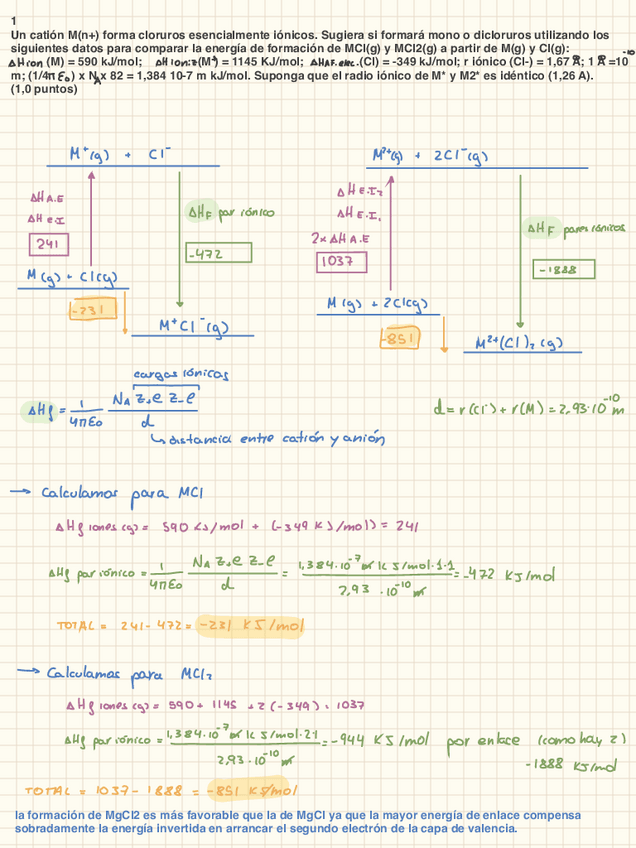 1
Un catión M(n+) forma cloruros esencialmente iónicos. Sugiera si formará mono o dicloruros utilizando los
siguientes datos para comparar la energía de formación de MCl(g) y MCl2(g) a partir de M(g) y Cl(g):
ΔH ion (M) = 590 kJ/mol; ΔH ion:2(M⁺) = 1145 KJ/mol; ΔHAF.elec.(Cl) = -349 kJ/mol; r iónico (Cl-) = 1,67 Å; 1 Å =10⁻¹⁰
m; (1/4π ε₀) x N_A x 82 = 1,384 10-7 m kJ/mol. Suponga que el radio iónico de M* y M2* es idéntico (1,26 A).
(1,0 puntos)
M⁺(g) + Cl⁻
M²⁺(g) + 2Cl⁻(g)
ΔH A.E
ΔH e.I
241
ΔH_F par iónico
-472
ΔH E.I₂
ΔH E.I₁
2x ΔH A.E
1037
ΔH_F pares iónicos
-1888
M(g) + Cl(g)
-231
M⁺Cl⁻(g)
M(g) + 2Cl(g)
-851
M²⁺(Cl⁻)₂(g)
cargas iónicas
ΔHf = 1/4πε₀ N_A z₊e z₋e / d
d = r(Cl⁻) + r(M) = 2,93·10⁻¹⁰ m
↳ distancia entre catión y anión
→ Calculamos para MCl
ΔHf iones (g) = 590 kJ/mol + (-349 KJ/mol) = 241
ΔHf par iónico = 1/4πε₀ N_A z₊e z₋e / d = 1,384·10⁻⁷ m KJ/mol·1·1 / 2,93·10⁻¹⁰ m = -472 KJ/mol
TOTAL = 241 - 472 = -231 KJ/mol
→ Calculamos para MCl₂
ΔHf iones (g) = 590 + 1145 + 2(-349) = 1037
ΔHf par iónico = 1,384·10⁻⁷ m KJ/mol·2·1 / 2,93·10⁻¹⁰ m = -944 KJ/mol por enlace (como hay 2)
-1888 KJ/mol
TOTAL = 1037 - 1888 = -851 KJ/mol
la formación de MgCl2 es más favorable que la de MgCl ya que la mayor energía de enlace compensa
sobradamente la energía invertida en arrancar el segundo electrón de la capa de valencia.